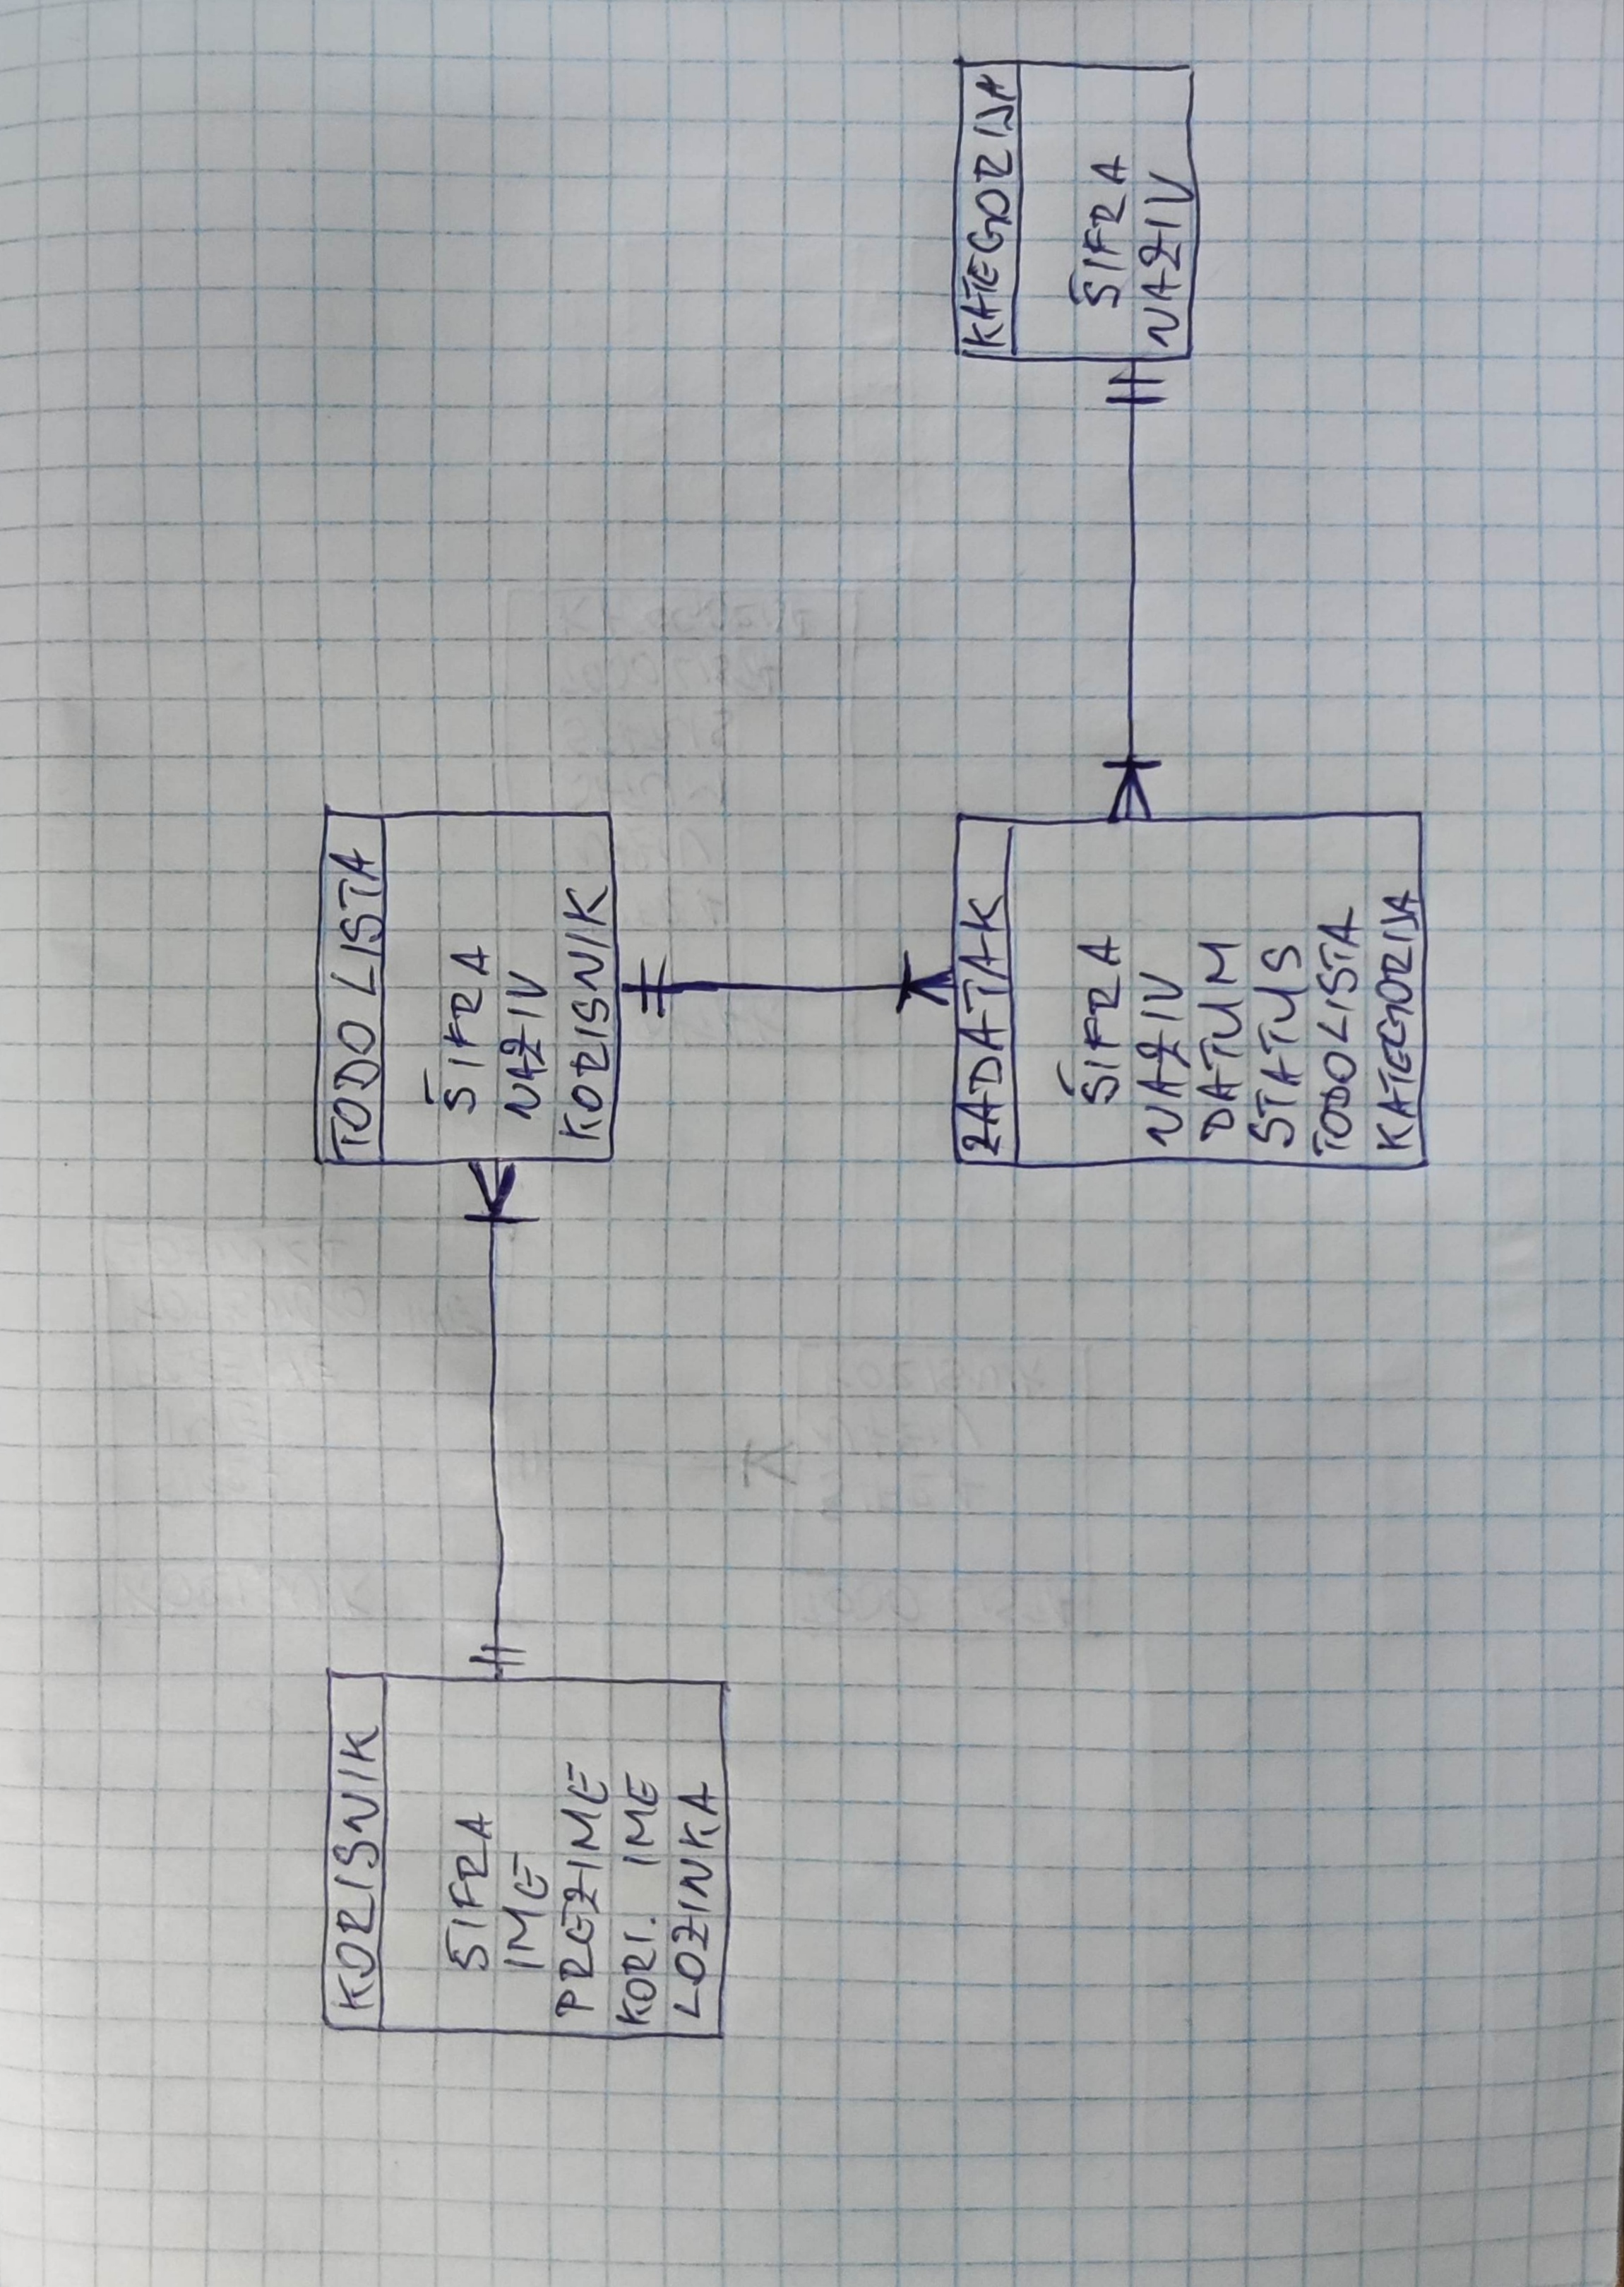 KORISNIK
ŠIFRA
IME
PREZIME
KORI. IME
LOZINKA
TODO LISTA
ŠIFRA
NAZIV
KORISNIK
ZADATAK
ŠIFRA
NAZIV
DATUM
STATUS
TODOLISTA
KATEGORIJA
KATEGORIJA
ŠIFRA
NAZIV